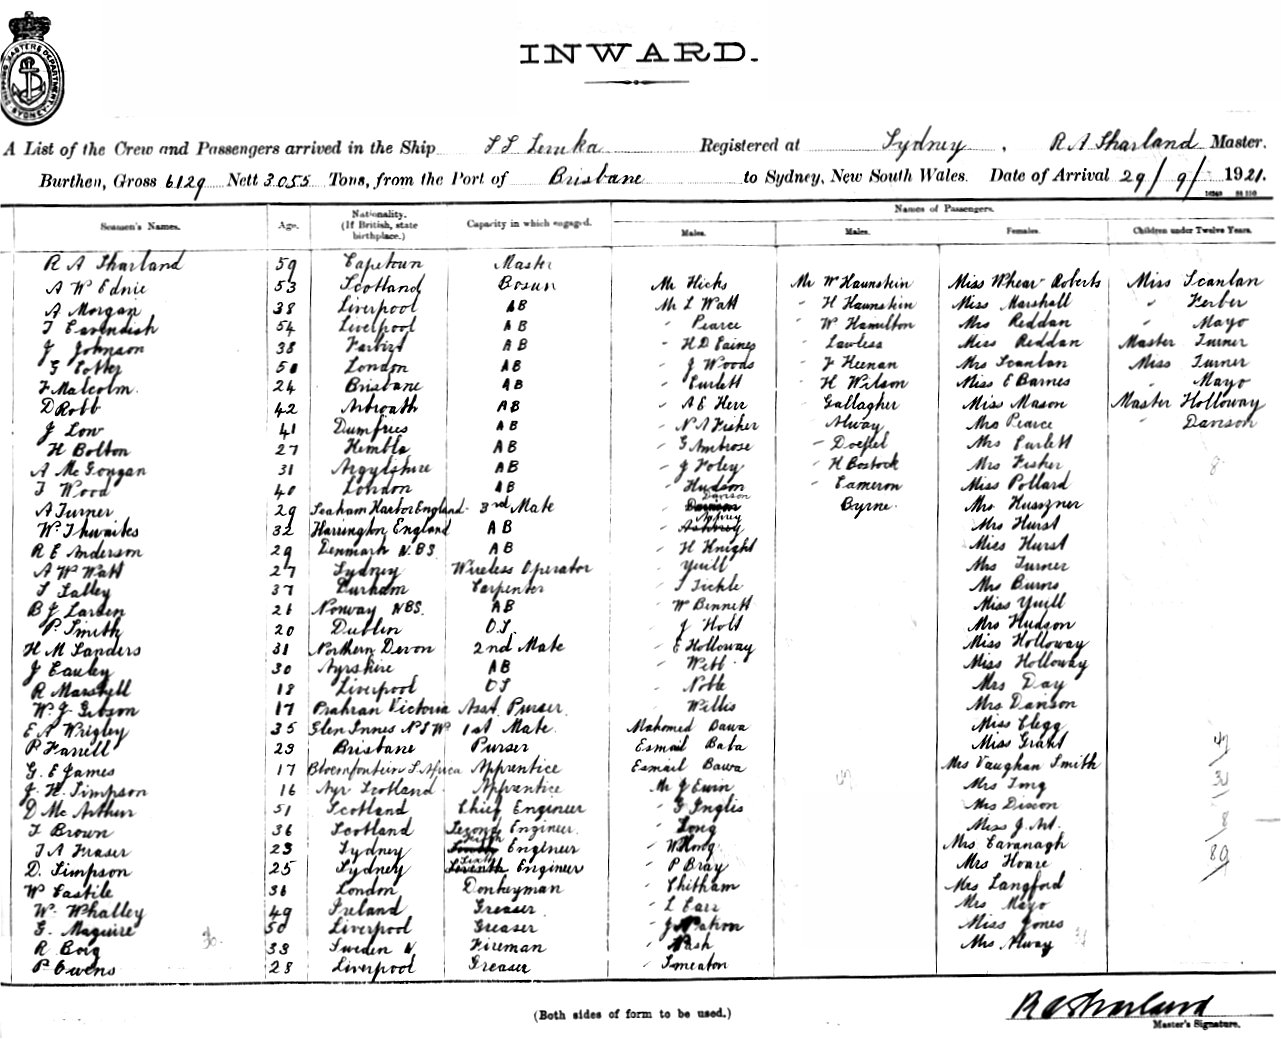 SHIPPING MASTERS DEPARTMENT SYDNEY
INWARD.
A List of the Crew and Passengers arrived in the Ship S S Levuka Registered at Sydney, R A Sharland Master.
Burthen, Gross 6129 Nett 3055 Tons, from the Port of Brisbane to Sydney, New South Wales. Date of Arrival 29/9/1921.
Names of Passengers.
Seamen's Names. Age. Nationality. (If British, state birthplace.) Capacity in which engaged. Males. Males. Females. Children under Twelve Years.
R A Sharland 59 Capetown Master
A W Ednie 53 Scotland Bosun Mr Hicks Mr W Haunstein Miss Whear Roberts Miss Scanlan
A Morgan 38 Liverpool AB Mr L Watt " H Haunstein Miss Marshall " Ferber
T Cavendish 54 Liverpool AB " Pearce " W Hamilton Mrs Reddan " Mayo
J Johnson 38 AB " H D Eaines " Lawless Miss Reddan Master Turner
G 50 London AB " J Woods " F Heenan Mrs Scanlan Miss Turner
F Malcolm. 24 Brisbane AB " Curlett " H Wilson Miss E Barnes " Mayo
D Robb 42 Arbroath AB " A E Herr " Gallagher Miss Mason Master Holloway
J Low 41 Dumfries AB " N A Fisher " Alway Mrs Pearce " Danson
H Bolton 27 AB " G Ambrose " Doepel Mrs Curlett
A McGougan 31 Argylshire AB " J Foley " H Bostock Mrs Fisher 8
T Wood 40 London AB " Hudson " Cameron Miss Pollard
A Turner 29 Seaham Harbor England 3rd Mate " Danson Byrne. Mrs Huszner
W Thwaites 32 Harrington England AB " Mrs Hurst
R E Anderson 29 Denmark N.BS AB " H Knight Miss Hurst
A W Watt 27 Sydney Wireless Operator " Yuill Mrs Turner
T Lalley 37 Durham Carpenter " T Tickle Mrs Burns
B J Larsen 26 Norway NBS. AB " W Bennett Miss Yuill
P. Smith 20 Dublin O.S. " J Holt Mrs Hudson
H M Sanders 31 Northern Devon 2nd Mate " E Holloway Miss Holloway
J Cauley 30 Ayrshire AB " Webb Miss Holloway
R Marshall 18 Liverpool OS " Noble Mrs Day
W J Gibson 17 Prahran Victoria Asst Purser. " Willis Mrs Danson
E A Wrigley 35 Glen Innes N S W 1st Mate. Mahomed Bawa Miss Clegg
P Farrell 23 Brisbane Purser Esmail Baba Miss Grant
G. E James 17 Bloemfontein S. Africa Apprentice Esmail Bawa Mrs Vaughan Smith
J. H. Simpson 16 Ayr Scotland Apprentice Mr J Ewin Mrs Tong
D McArthur 51 Scotland Chief Engineer " G Inglis Mrs Dixon
T Brown 36 Scotland Second Engineer. " Long Miss J.
T A Fraser 23 Sydney Fifth Engineer " W Hong Mrs Cavanagh
D. Simpson 25 Sydney Sixth Engineer " P Bray Mrs Hoare
W Eastile 36 London Donkeyman " Chitham Mrs Langford
W. Whalley 49 Ireland Greaser " L Carr Mrs Mayo
G. Maguire 50 Liverpool Greaser " J Miss Jones
R Boig 33 Sweden N Fireman " Nash Mrs Alway
P Owens 28 Liverpool Greaser " Smeaton
(Both sides of form to be used.)
R A Sharland
Master's Signature.